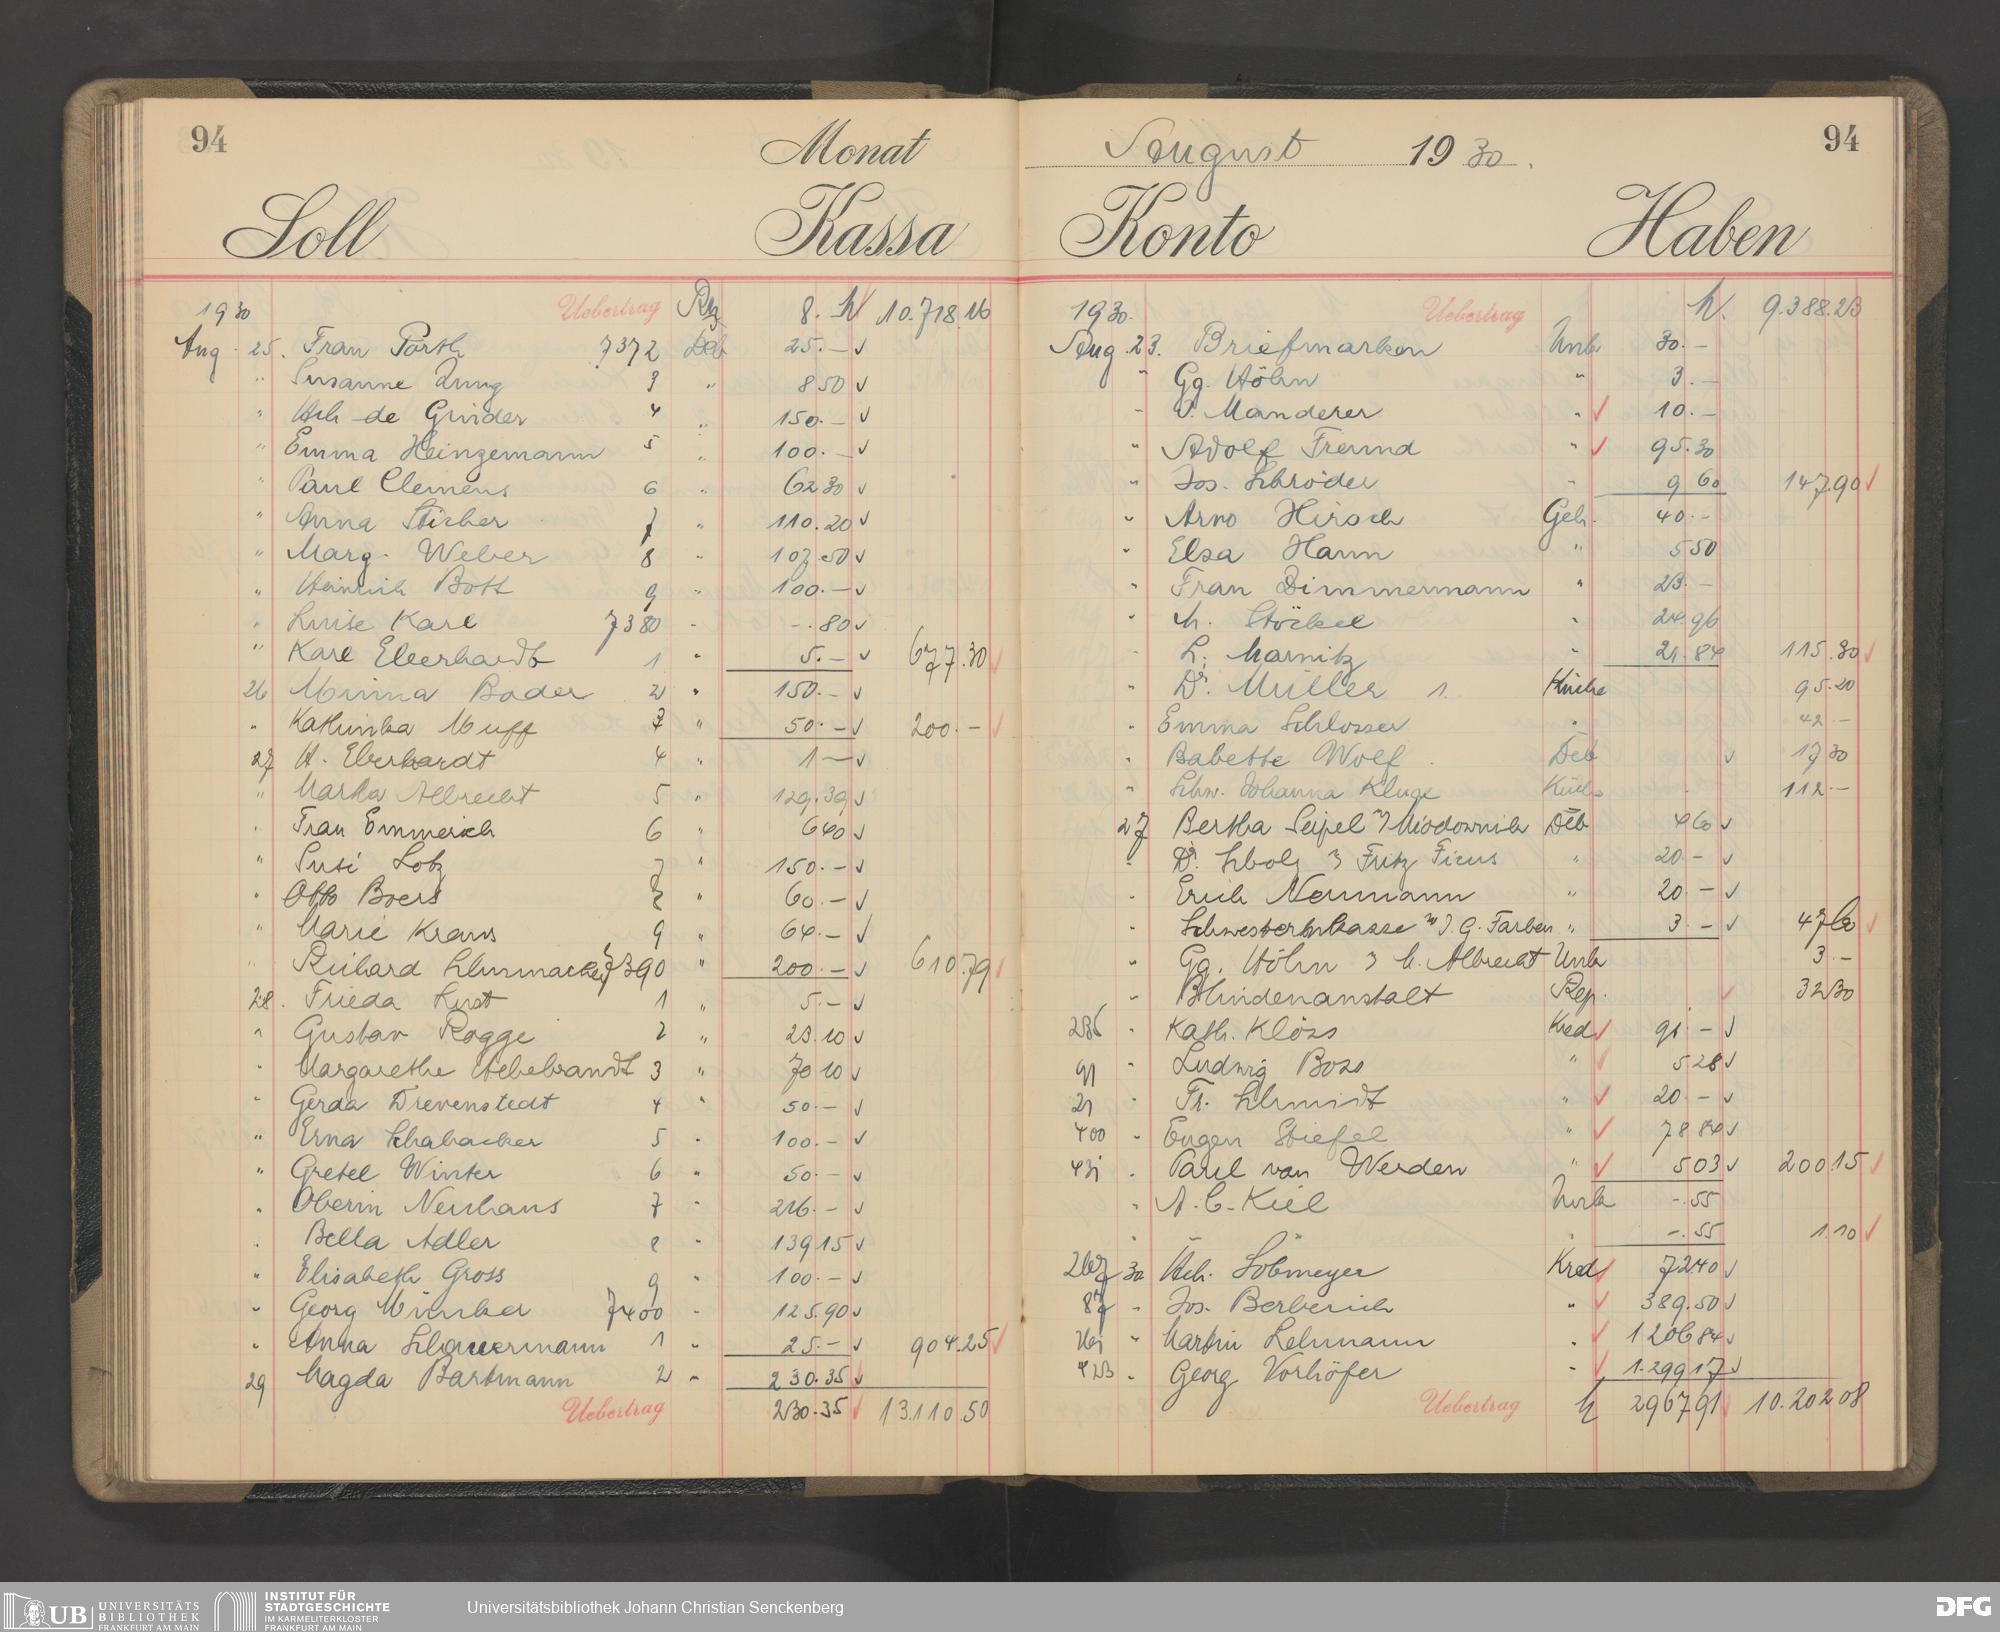 94
Monat
Soll Kassa
1930 Uebertrag 10.718.16
Aug. 25. Frau Porth 7372 Deb 25.—
" Susanne Jung 3 " 8 50
" Hch de Grinder 4 " 150.—
" Emma Heinzemann 5 " 100.—
" Paul Clemens 6 " 62 30
" Anna Stieber 7 " 110.20
" Marg. Weber 8 " 107.50
" Heinrich Bott 9 " 100.—
" Luise Karl 7380 " —.80
" Karl Eberhardt 1 " 5.— 677.30
26 Minna Bader 2 " 150.—
" Kathinka Muff 3 " 50.— 200.—
27 H. Eberhardt 4 " 1—
" Martha Albrecht 5 " 129.39
" Frau Emmerich 6 " 6 40
" Susi Lotz 7 " 150.—
" Otto Boers 8 " 60.—
" Marie Kraus 9 " 64.—
" Richard Schumacher 7390 " 200.— 610.79
28. Frieda Kust 1 " 5.—
" Gustav Rogge 2 " 23.10
" Margarethe Hebebrandt 3 " 70 10
" Gerda Drevenstedt 4 " 50.—
" Erna Schabacker 5 " 100.—
" Gretel Winter 6 " 50.—
" Oberin Neuhaus 7 " 216.—
" Bella Adler 8 " 139 15
" Elisabeth Gross 9 " 100.—
" Georg Minker 7400 " 125.90
" Anna Schauermann 1 " 25.— 904.25
29 Magda Bartmann 2 " 230.35
Uebertrag 230.35 13.110.50
August 1930. 94
Konto Haben
1930. Uebertrag 9.388.23
Aug. 23. Briefmarken Unk 30.—
" Gg. Höhn " 3.—
" V. Manderer " 10.—
" Adolf Freund " 95.30
" Jos. Schröder " 9 60 147.90
" Arno Hirsch Geh. 40.—
" Elsa Hann " 5 50
" Frau Zimmermann " 23.—
" M. Stöckel " 24.96
" L. Marnitz " 21.84 115.30
" Dr. Müller 1. Küche 95.20
" Emma Schlosser " 42.—
" Babette Wolf Deb 17 30
" Schw. Johanna Kluge Küche 112.—
27 Bertha Seipel Miodownik Deb 4 60
" Dr. Scholz Fritz Ficus " 20.—
" Erich Neumann " 20.—
" Schwesternkasse I. G. Farben " 3.— 47 60
" Gg. Höhn M. Albrecht Unk 3.—
" Blindenanstalt Rep. 32 30
236 " Kath. Klöss Kred 91.—
91 " Ludwig Boss " 5 28
21 " Fr. Schmidt " 20.—
400 " Eugen Stiefel " 78 84
431 " Paul van Werden " 5 03 200 15
" A. C. Kiel Unk —.55
" " —.55 1.10
267 30 Hch. Löbmeyer Kred 72.40
87 " Jos. Berberich " 389.50
261 " Martin Lehmann " 1 206 84
423 " Georg Vorhöfer " 1.299 17
Uebertrag 2967.91 10.202 08
UB UNIVERSITÄTS
BIBLIOTHEK
FRANKFURT AM MAIN
INSTITUT FÜR
STADTGESCHICHTE
IM KARMELITERKLOSTER
FRANKFURT AM MAIN
Universitätsbibliothek Johann Christian Senckenberg
DFG